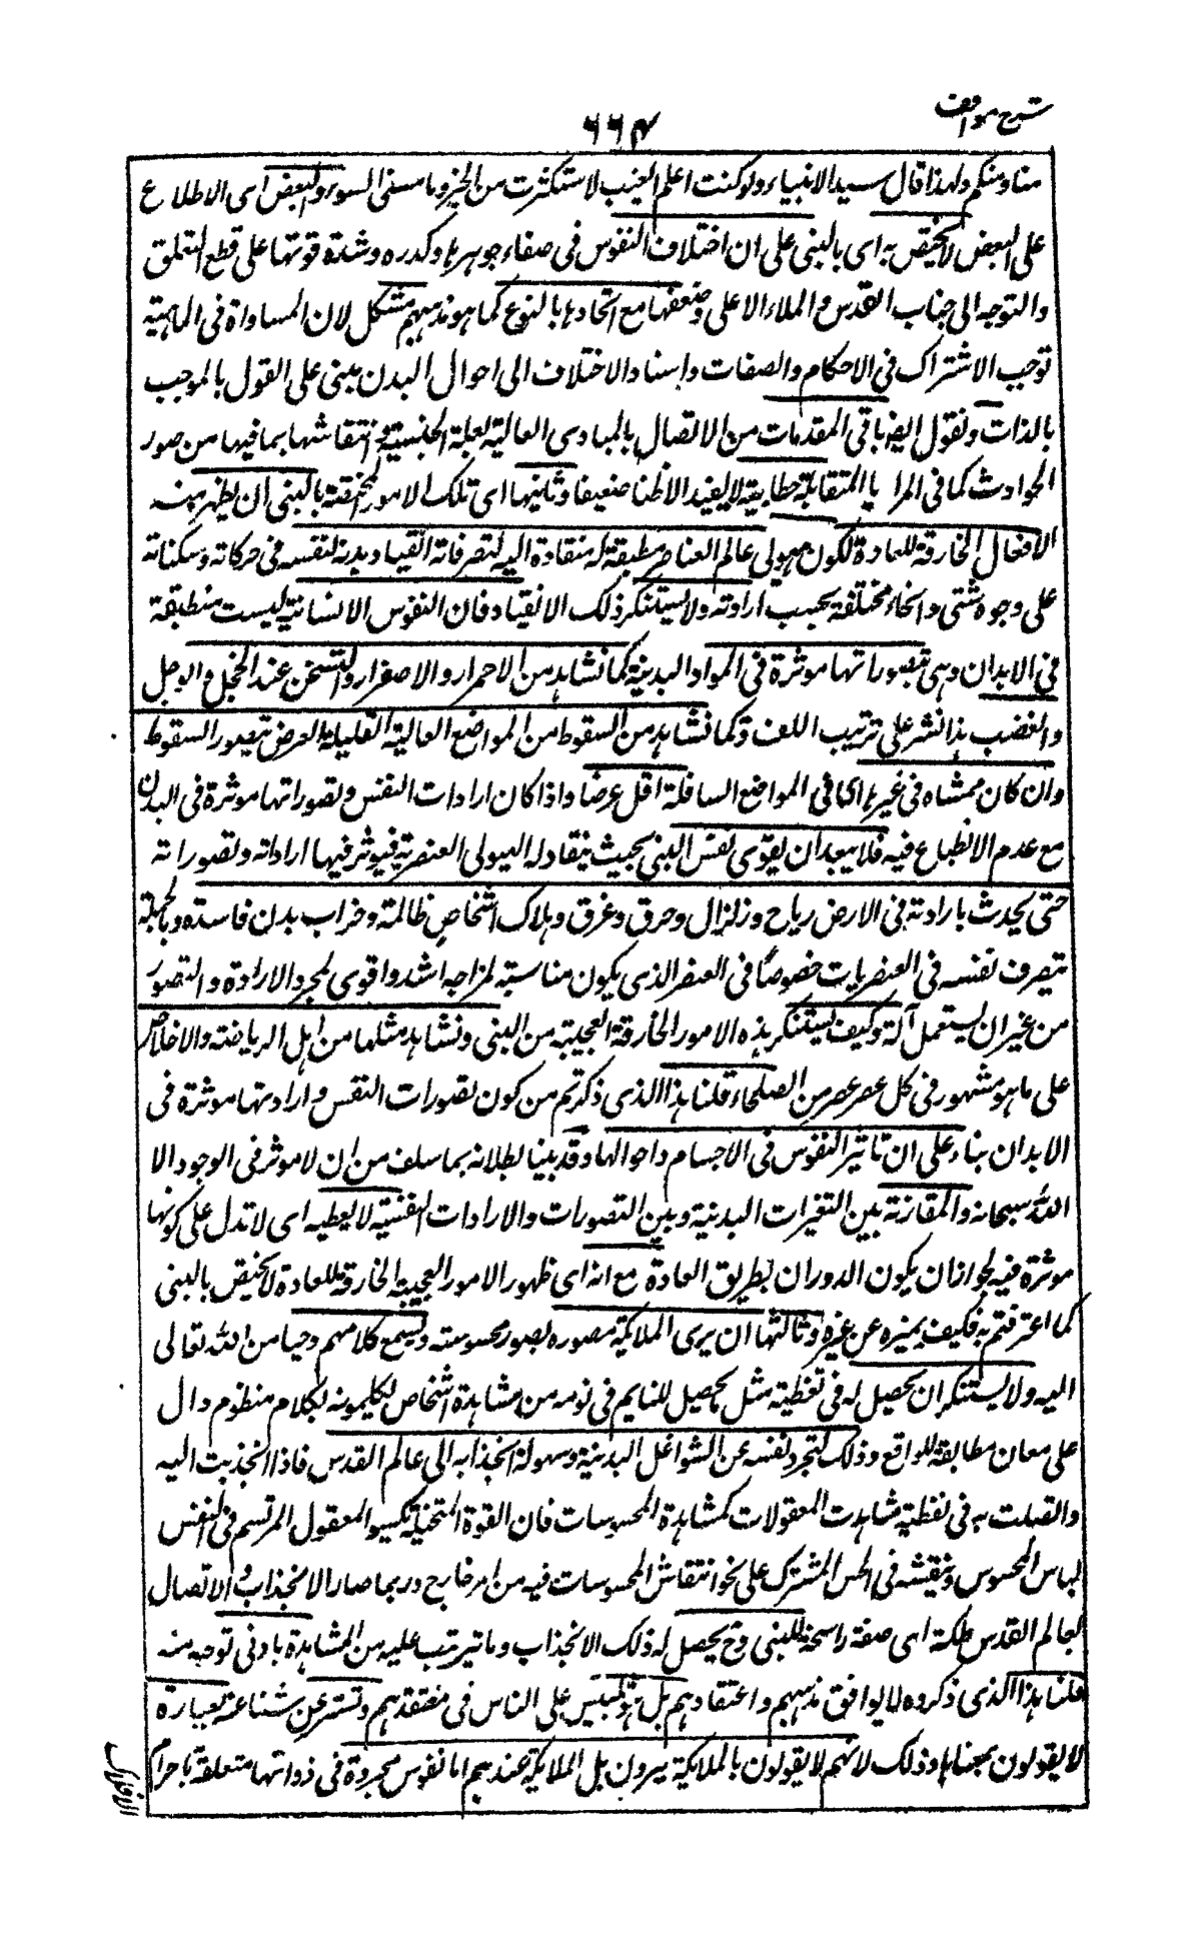 شرح مواقف
٦٦٤
منا ومنكم ولهذا قال سيد الانبياء ولو كنت اعلم الغيب لاستكثرت من الخير وما مسنى السوء والبعض اى الاطلاع
على البعض لا يختص به اى بالنبى على ان اختلاف النفوس فى صفاء جوهرها وكدره وشدة قوتها على قطع التعلق
والتوجه الى جناب القدس والملاء الاعلى وضعفها مع اتحادها بالنوع كما هو مذهبهم مشكل لان المساواة فى الماهية
توجب الاشتراك فى الاحكام والصفات واسناد الاختلاف الى احوال البدن مبنى على القول بالموجب
بالذات ونقول ايضا باقى المقدمات من الاتصال بالمبادى العالية لعلة الجنسية وانتقاشها بما فيها من صور
الحوادث كما فى المرايا المتقابلة خطابية لا يفيد الا ظنا ضعيفا وثانيها اى تلك الامور المختصة بالنبى ان يظهر منه
الافعال الخارقة للعادة لكون هيولى عالم العناصر مطيعة له منقادة اليه لتصرفاته انقياد بدنه لنفسه فى حركاته وسكناته
على وجوه شتى وانحاء مختلفة بحسب ارادته ولا يستنكر ذلك الانقياد فان النفوس الانسانية ليست منطبعة
فى الابدان وهى بتصوراتها موثرة فى المواد البدنية كما نشاهد من الاحمرار والاصفرار والتسخن عند الخجل والوجل
والغضب هذا نشر على ترتيب اللف وكما نشاهد من السقوط من المواضع العالية القليلة العرض بتصور السقوط
وان كان ممشاه فى غيرها اى فى المواضع السافلة اقل عرضا واذا كان ارادات النفس وتصوراتها موثرة فى البدن
مع عدم الانطباع فيه فلا يبعد ان يقوى نفس النبى بحيث ينقاد له الهيولى العنصرية فيوثر فيها اراداته وتصوراته
حتى يحدث بارادته فى الارض رياح وزلزال وحرق وغرق وهلاك اشخاص ظالمة وخراب بدن فاسدة وبالجملة
تتصرف نفسه فى العنصريات خصوصًا فى العنصر الذى يكون مناسبته لمزاجه اشد واقوى لمجرد الارادة والتصور
من غير ان يستعمل آلة وكيف يستنكر هذه الامور الخارقة العجيبة من النبى ونشاهد مثلها من اهل الرياضة والاخلاص
على ما هو مشهور فى كل عصر عصر من الصلحاء قلنا هذا الذى ذكرتم من كون تصورات النفس وارادتها موثرة فى
الابدان بناء على ان تاثير النفوس فى الاجسام واحوالها وقد بينا بطلانه بما سلف من ان لا موثر فى الوجود الا
الله سبحانه والمقارنة بين التغيرات البدنية وبين التصورات والارادات النفسية لا يعطيه اى لا تدل على كونها
موثرة فيه لجواز ان يكون الدوران بطريق العادة مع انه اى ظهور الامور العجيبة الخارقة للعادة لا يختص بالنبى
كما اعترفتم به فكيف يميزه عن غيره وثالثها ان يرى الملائكة مصوره بصور محسوسته ويسمع كلامهم وحيا من الله تعالى
اليه ولا يستنكر ان يحصل له فى يقظته مثل ما يحصل للنايم فى نومه من مشاهدة اشخاص يكلمونه بكلام منظوم دال
على معان مطابقة للواقع وذلك لتجرد نفسه عن الشواغل البدنية وسهولة انجذابه الى عالم القدس فاذا انجذبت اليه
واتصلت به فى يقظتها شاهدت المعقولات كمشاهدة المحسوسات فان القوة المتخيلة تكسو المعقول المرتسم فى النفس
لباس المحسوس وتنقشه فى الحس المشترك على نحو انتقاش المحسوسات فيه من امر خارج وربما صار الانجذاب والاتصال
بعالم القدس ملكة اى صفة راسخة للنبى وح يحصل له ذلك الانجذاب وما يترتب عليه من المشاهدة بادنى توجه منه
قلنا هذا الذى ذكروه لا يوافق مذهبهم واعتقادهم بل هو تلبيس على الناس فى معتقدهم وتستر عن شناعته بعبارة
لا يقولون بمعناها وذلك لانهم لا يقولون بالملائكة يرون بل الملائكة عندهم اما نفوس مجردة فى ذواتها متعلقة باجرام
الافلاك